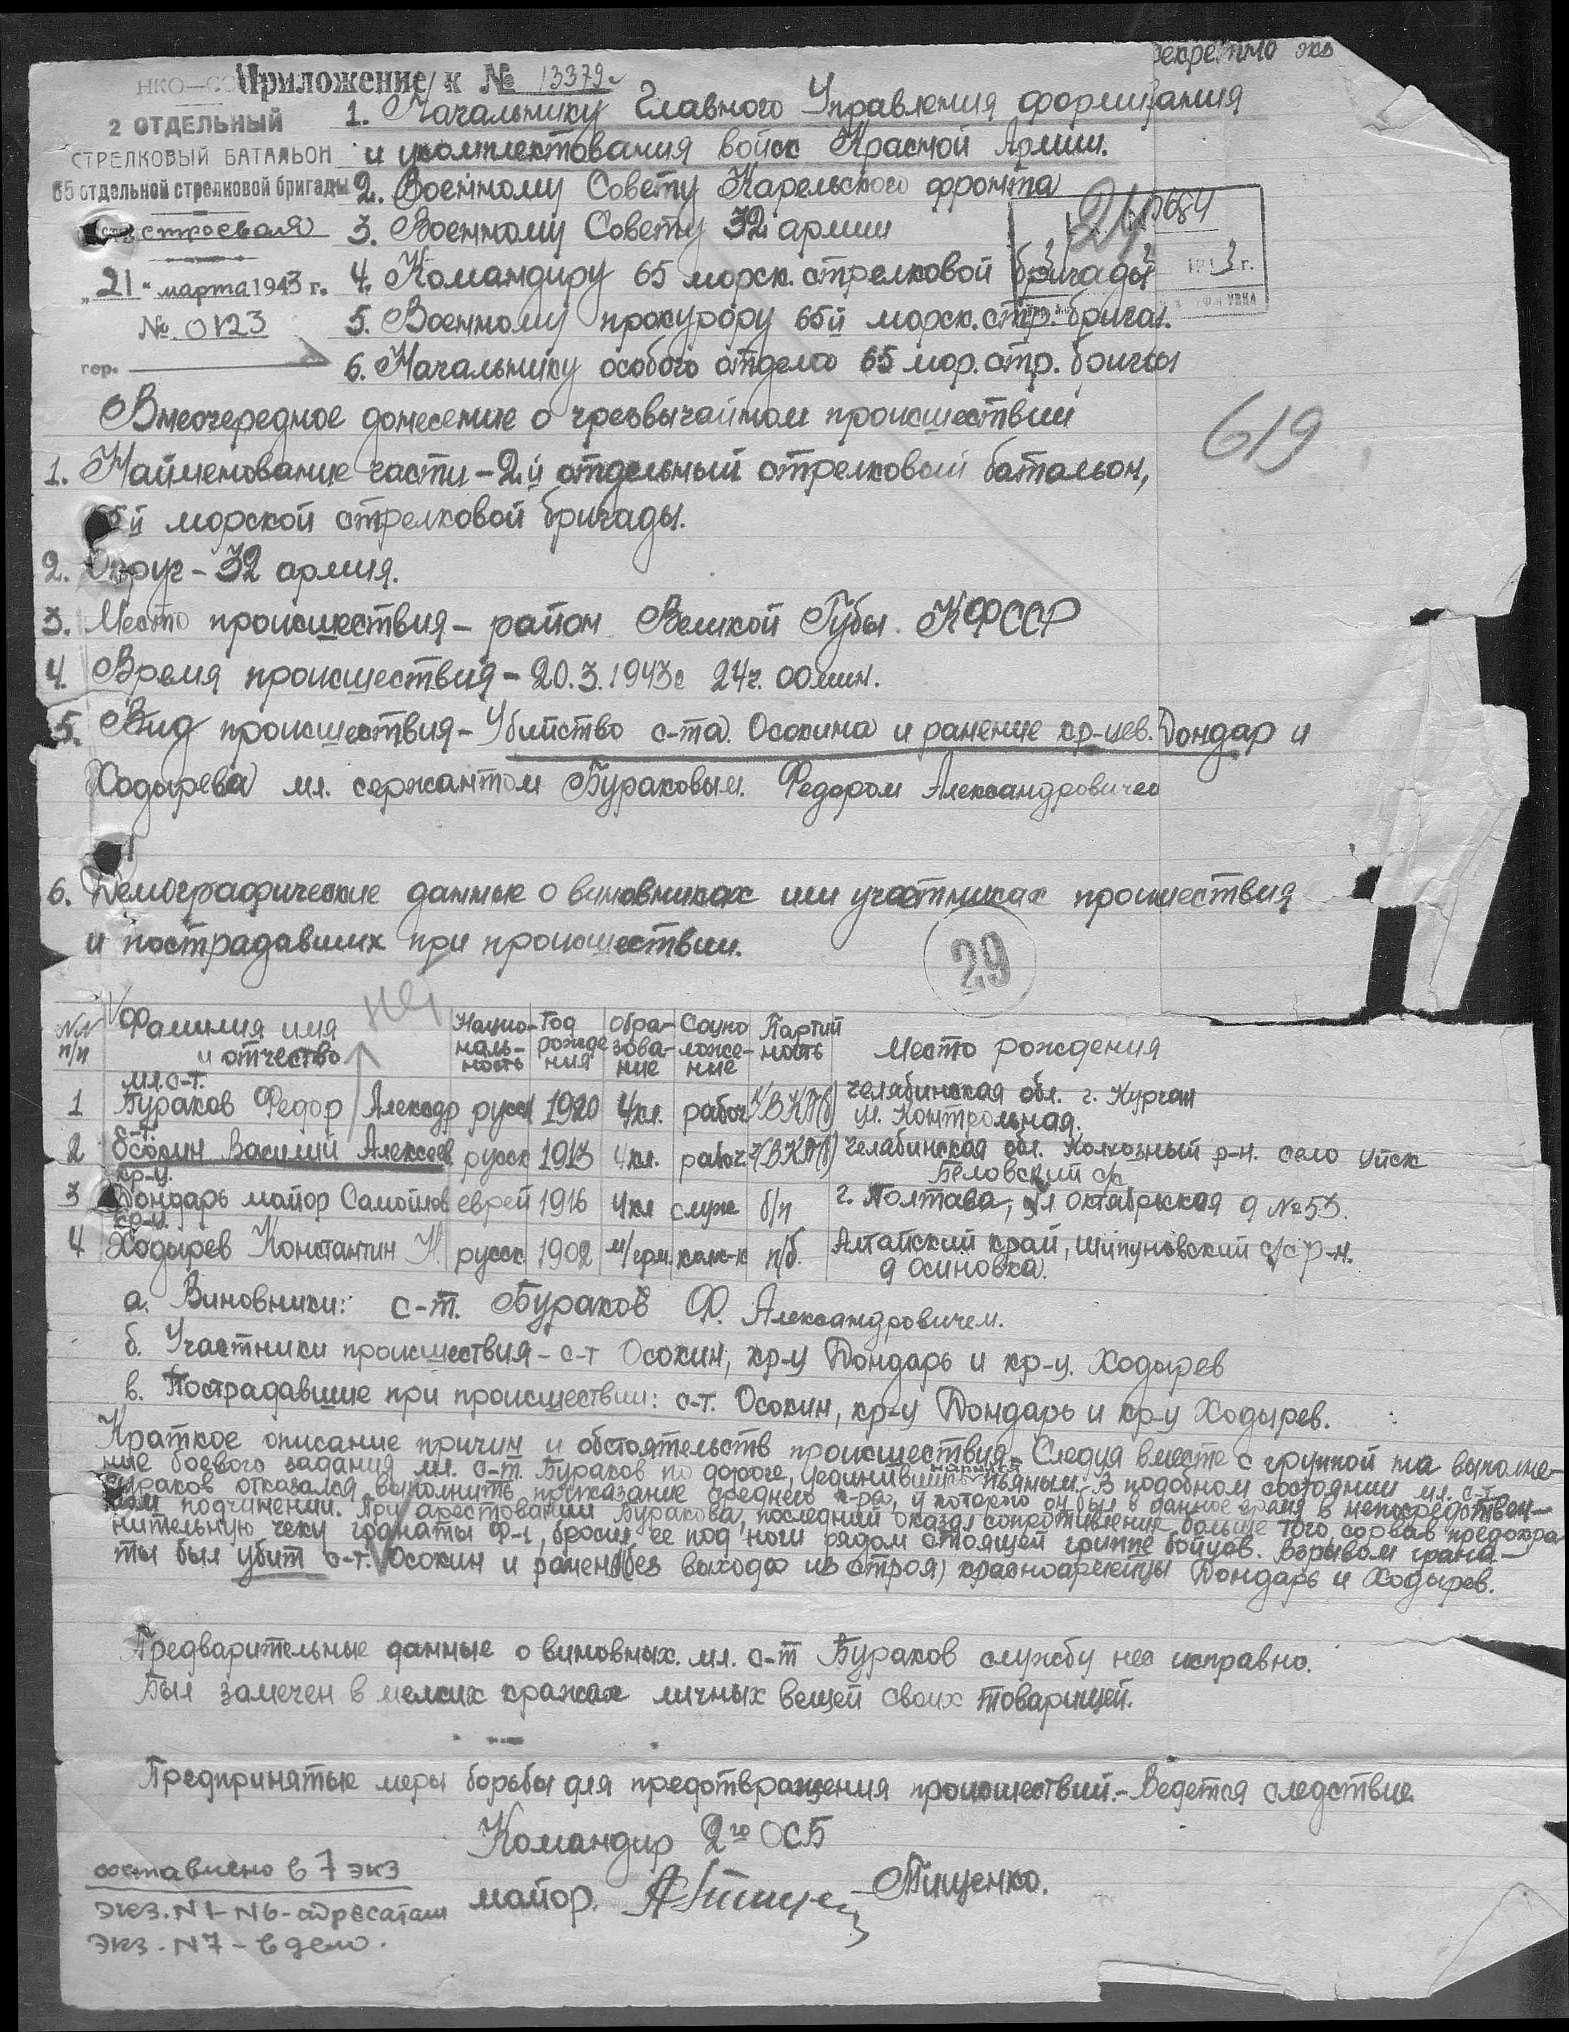 секретно экз
НКО—СО
Приложение к № 13379
2 ОТДЕЛЬНЫЙ
СТРЕЛКОВЫЙ БАТАЛЬОН
65 отдельной стрелковой бригады
строевая
„21" марта 1943 г.
№ 0123
гор.
1. Начальнику Главного Управления формирования
и укомплектования войск Красной Армии.
2. Военному Совету Карельского фронта
3. Военному Совету 32 армии
4. Командиру 65 морск. стрелковой бригады
5. Военному прокурору 65й морск. стр. бригад.
6. Начальнику особого отдела 65 мор. стр. бригады
Внеочередное донесение о чрезвычайном происшествии
619
1. Наименование части – 2й отдельный стрелковый батальон,
65й морской стрелковой бригады.
2. Округ – 32 армия.
3. Место происшествия – район Великой Губы КФССР
4. Время происшествия – 20.3.1943г 24ч. 00мин.
5. Вид происшествия – Убийство с-та Осокина и ранение кр-цев. Дондар и
Ходырева мл. сержантом Бураковым Федором Александровичем
6. Демографические данные о виновниках или участниках происшествия
и пострадавших при происшествии.
29
№№ п/п Фамилия имя и отчество Национальность Год рождения Образование Соцположение Партийность Место рождения
1 мл. с-т. Бураков Федор Александр русск 1920 4кл. рабоч. К/ВКП(б) Челябинская обл. г. Курган ул. Контрольная.
2 с-т. Осокин Василий Алексеев русск 1913 4кл. рабоч. К/ВКП(б) Челябинская обл. Колхозный р-н. село Уйск Беловский с/с
3 кр-ц. Дондарь Майор Самойлов еврей 1916 4кл служ б/п г. Полтава, ул Октябрьская д №53.
4 кр-ц. Ходырев Константин Н русск. 1902 м/грм. колх-к п/б. Алтайский край, Шипуновский с/с р-н. д Осиновка.
а. Виновники: с-т. Бураков Ф. Александровичем.
б. Участники происшествия – с-т Осокин, кр-ц Дондарь и кр-ц. Ходырев
в. Пострадавшие при происшествии: с-т. Осокин, кр-ц Дондарь и кр-ц Ходырев.
Краткое описание причин и обстоятельств происшествия – Следуя вместе с группой на выполне-
ние боевого задания мл. с-т. Бураков по дороге, уединившись напился пьяным. В подобном состоянии мл. с-т.
Бураков отказался выполнить приказание среднего к-ра, у которого он был в данное время в непосредствен-
ном подчинении. При арестовании Буракова, последний оказал сопротивление больше того, сорвав предохра-
нительную чеку гранаты Ф-1, бросил ее под ноги рядом стоящей группе бойцов. Взрывом грана-
ты был убит с-т. Осокин и ранен (без выхода из строя) красноармейцы Дондарь и Ходырев.
Предварительные данные о виновных. мл. с-т Бураков службу нес исправно.
Был замечен в мелких кражах личных вещей своих товарищей.
Предпринятые меры борьбы для предотвращения происшествий. – Ведется следствие
Командир 2го ОСБ
майор. Тищенко.
составлено в 7 экз
экз. N1–N6 – адресатам
экз. N7 – в дело.